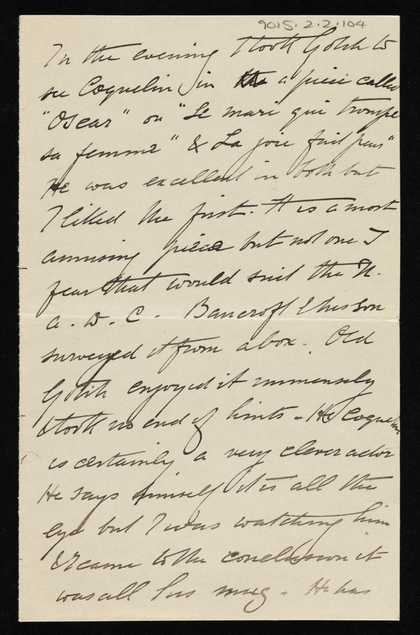 9015.2.2.104
In the evening I took Golch to
see Coquelin in a piece called
"Oscar" ou "Le mari qui trompe
sa femme" & La joie fait peur"
He was excellent in both but
I liked the first. It is a most
amusing piece but not one I
fear that would suit the N.
A. D. C. - Bancroft & his son
surveyed it from a box. Old
enjoyed it immensely
& took no end of hints - Coquelin
is certainly a very clever actor
He says himself it is all the
eye but I was watching him
& I came to the conclusion it
was all his mug - He has